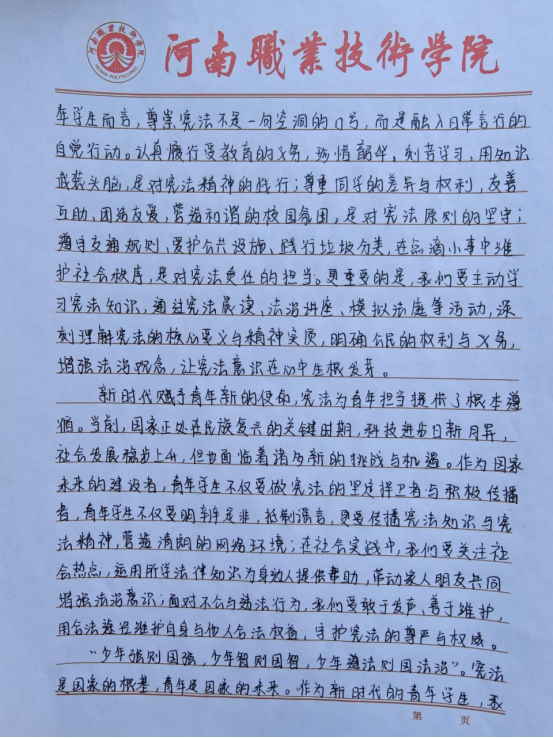 河南職業技術學院
HENAN POLYTECHNIC
年学生而言，尊崇宪法不是一句空洞的口号，而是融入日常言行的
自觉行动。认真履行受教育的义务，珍惜韶华、刻苦学习，用知识
武装头脑，是对宪法精神的践行；尊重同学的差异与权利，友善
互助、团结友爱，营造和谐的校园氛围，是对宪法原则的坚守；
遵守交通规则、爱护公共设施、践行垃圾分类，在点滴小事中维
护社会秩序，是对宪法责任的担当。更重要的是，我们要主动学
习宪法知识，通过宪法晨读、法治讲座、模拟法庭等活动，深
刻理解宪法的核心要义与精神实质，明确公民的权利与义务，
增强法治观念，让宪法意识在心中生根发芽。
新时代赋予青年新的使命，宪法为青年担当提供了根本遵
循。当前，国家正处在民族复兴的关键时期，科技进步日新月异，
社会发展稳步上升，但也面临着诸多新的挑战与机遇。作为国家
未来的建设者，青年学生不仅要做宪法的坚定捍卫者与积极传播
者，青年学生不仅要明辨是非，抵制谣言，更要传播宪法知识与宪
法精神，营造清朗的网络环境；在社会实践中，我们要关注社
会热点，运用所学法律知识为身边人提供帮助，带动家人朋友共同
增强法治意识；面对不公与违法行为，我们要敢于发声、善于维护，
用合法途径维护自身与他人合法权益，守护宪法的尊严与权威。
“少年强则国强，少年智则国智，少年遵法则国法治”。宪法
是国家的根基，青年是国家的未来。作为新时代的青年学生，我
第 页